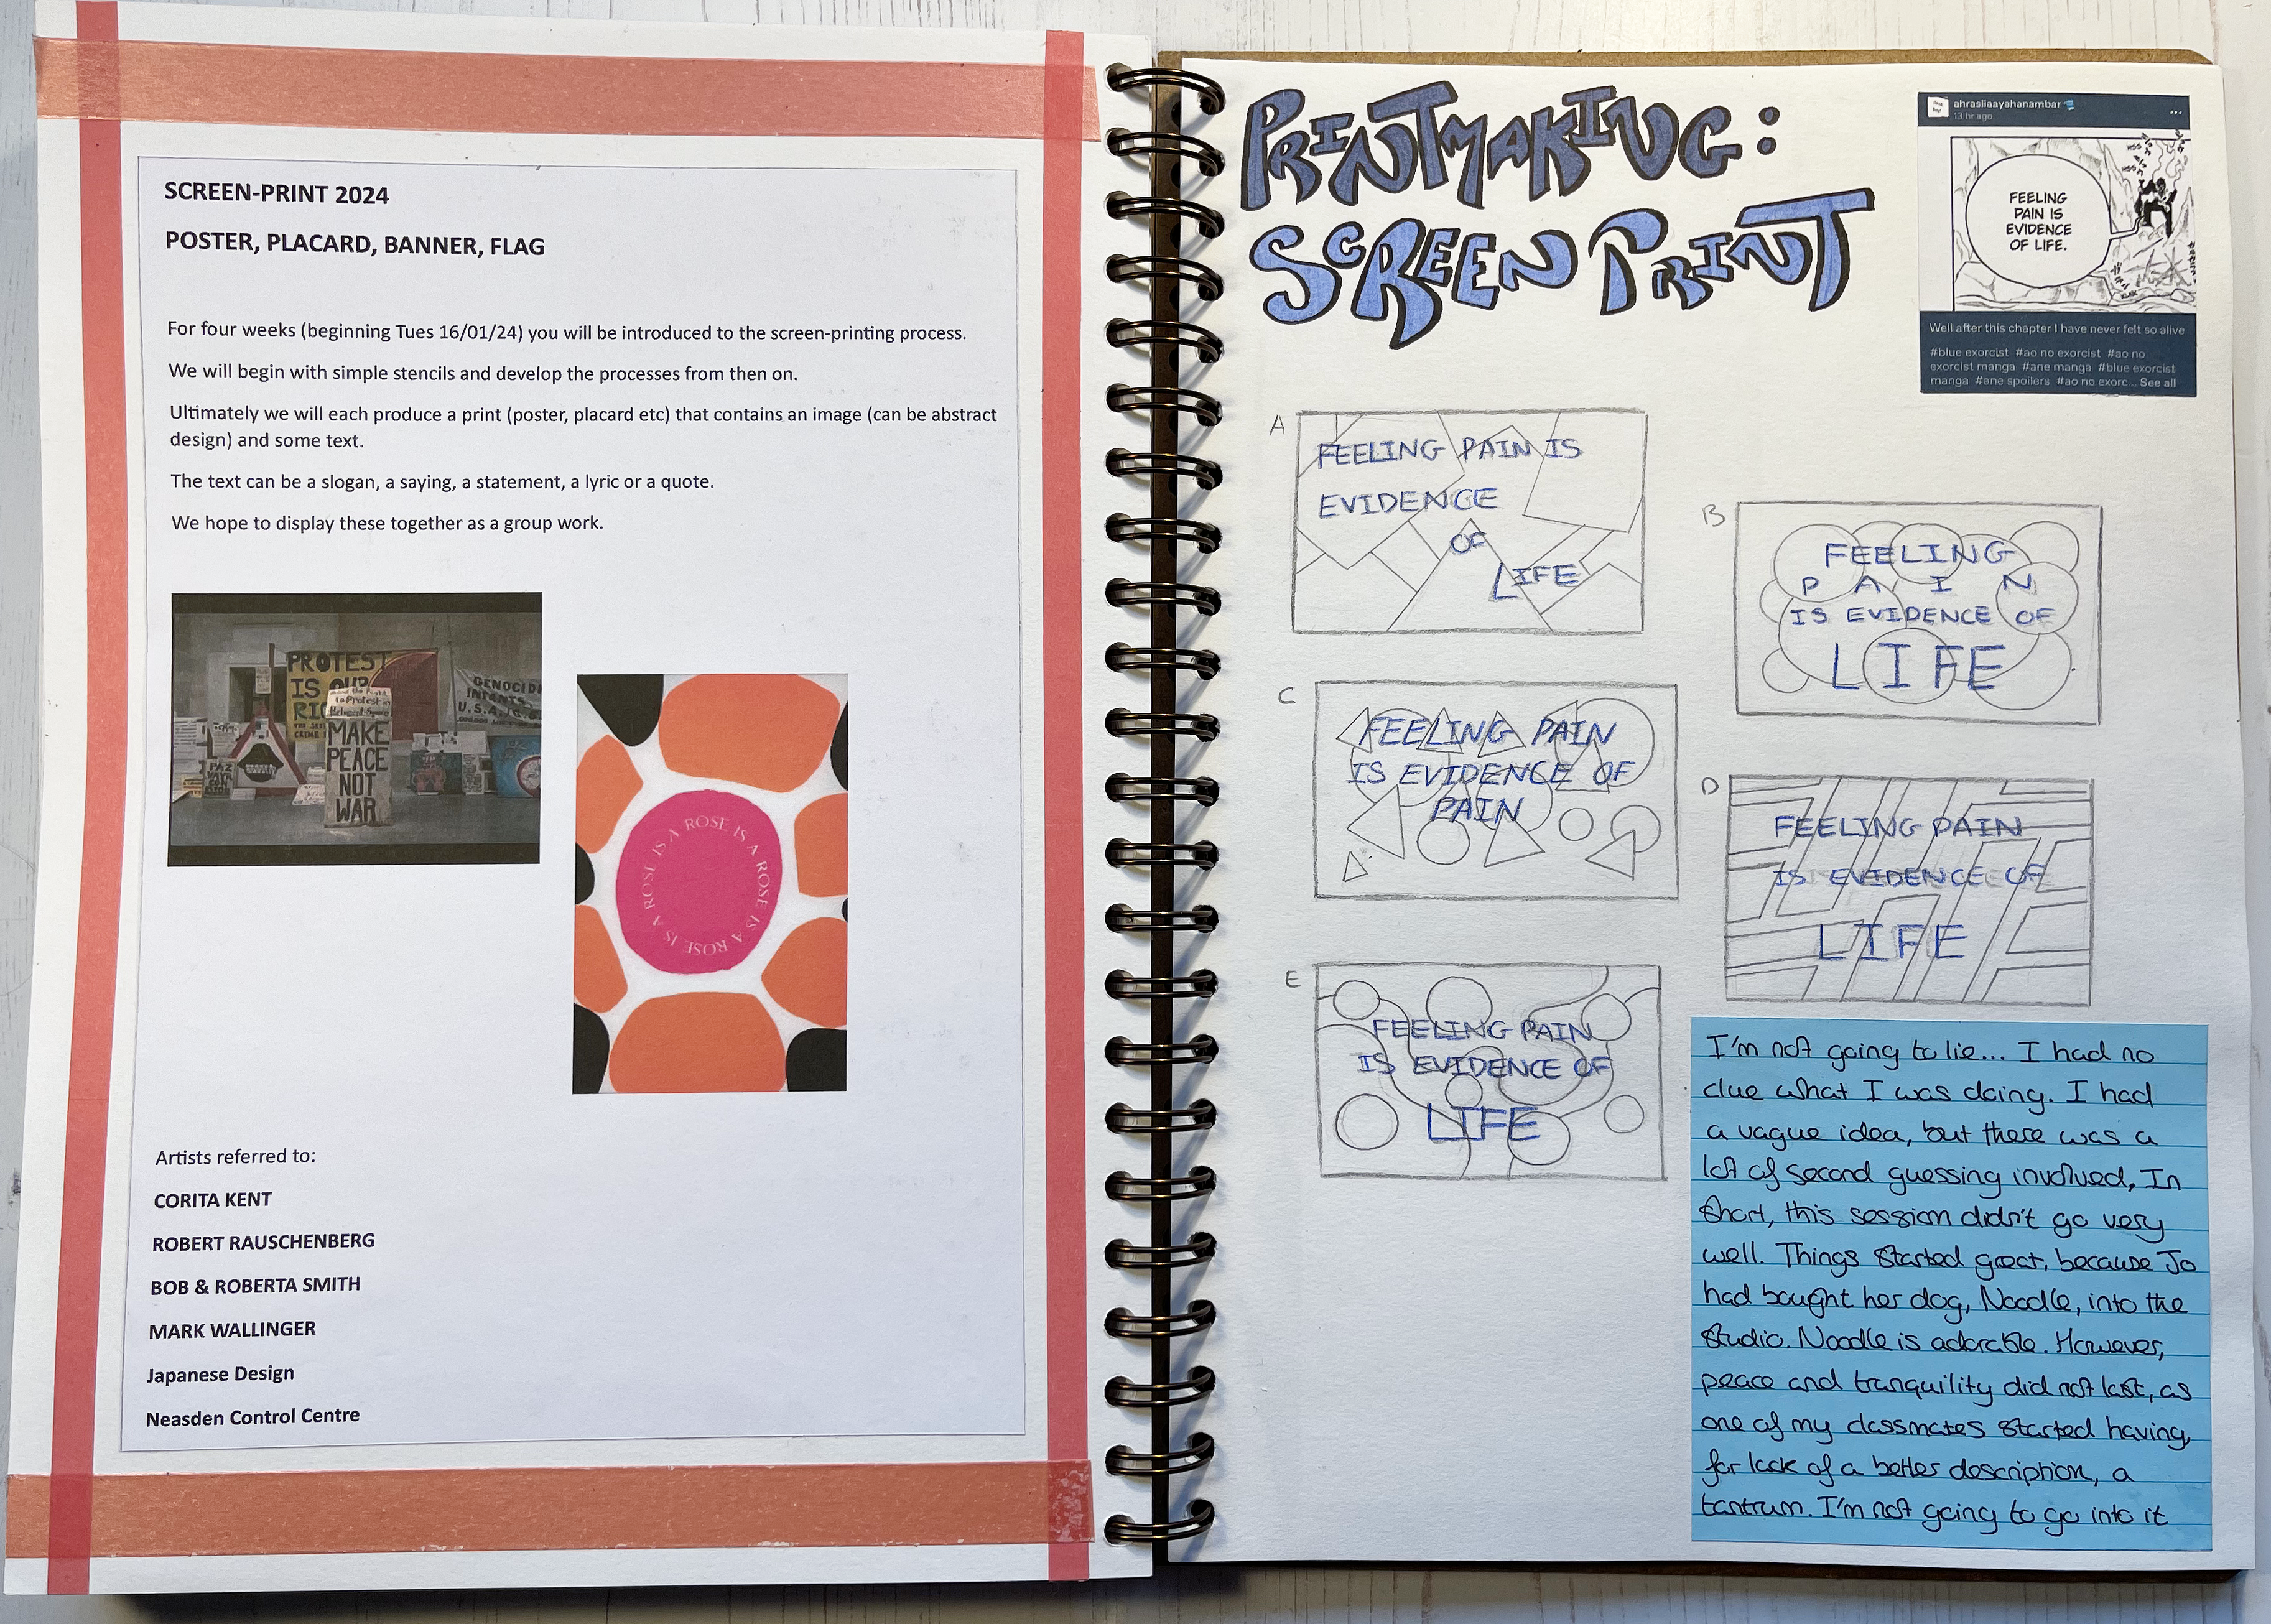 SCREEN-PRINT 2024
POSTER, PLACARD, BANNER, FLAG
For four weeks (beginning Tues 16/01/24) you will be introduced to the screen-printing process.
We will begin with simple stencils and develop the processes from then on.
Ultimately we will each produce a print (poster, placard etc) that contains an image (can be abstract
design) and some text.
The text can be a slogan, a saying, a statement, a lyric or a quote.
We hope to display these together as a group work.
PROTEST
IS OUR
to Protest in
MAKE
PEACE
NOT
WAR
GENOCID
INFANTS
U.S.A.
ROSE IS A ROSE IS A ROSE IS A ROSE IS A
Artists referred to:
CORITA KENT
ROBERT RAUSCHENBERG
BOB & ROBERTA SMITH
MARK WALLINGER
Japanese Design
Neasden Control Centre
PRINTMAKING:
SCREEN PRINT
ahrasliaayahanambar
13 hr ago
FEELING
PAIN IS
EVIDENCE
OF LIFE.
Well after this chapter I have never felt so alive
#blue exorcist #ao no exorcist #ao no
exorcist manga #ane manga #blue exorcist
manga #ane spoilers #ao no exorc... See all
A
FEELING PAIN IS
EVIDENCE
OF
LIFE
B
FEELING
P A I N
IS EVIDENCE OF
LIFE
C
FEELING PAIN
IS EVIDENCE OF
PAIN
D
FEELING PAIN
IS EVIDENCE OF
LIFE
E
FEELING PAIN
IS EVIDENCE OF
LIFE
I'm not going to lie... I had no
clue what I was doing. I had
a vague idea, but there was a
lot of second guessing involved. In
short, this session didn't go very
well. Things started great, because Jo
had bought her dog, Noodle, into the
studio. Noodle is adorable. However,
peace and tranquility did not last, as
one of my classmates started having,
for lack of a better description, a
tantrum. I'm not going to go into it